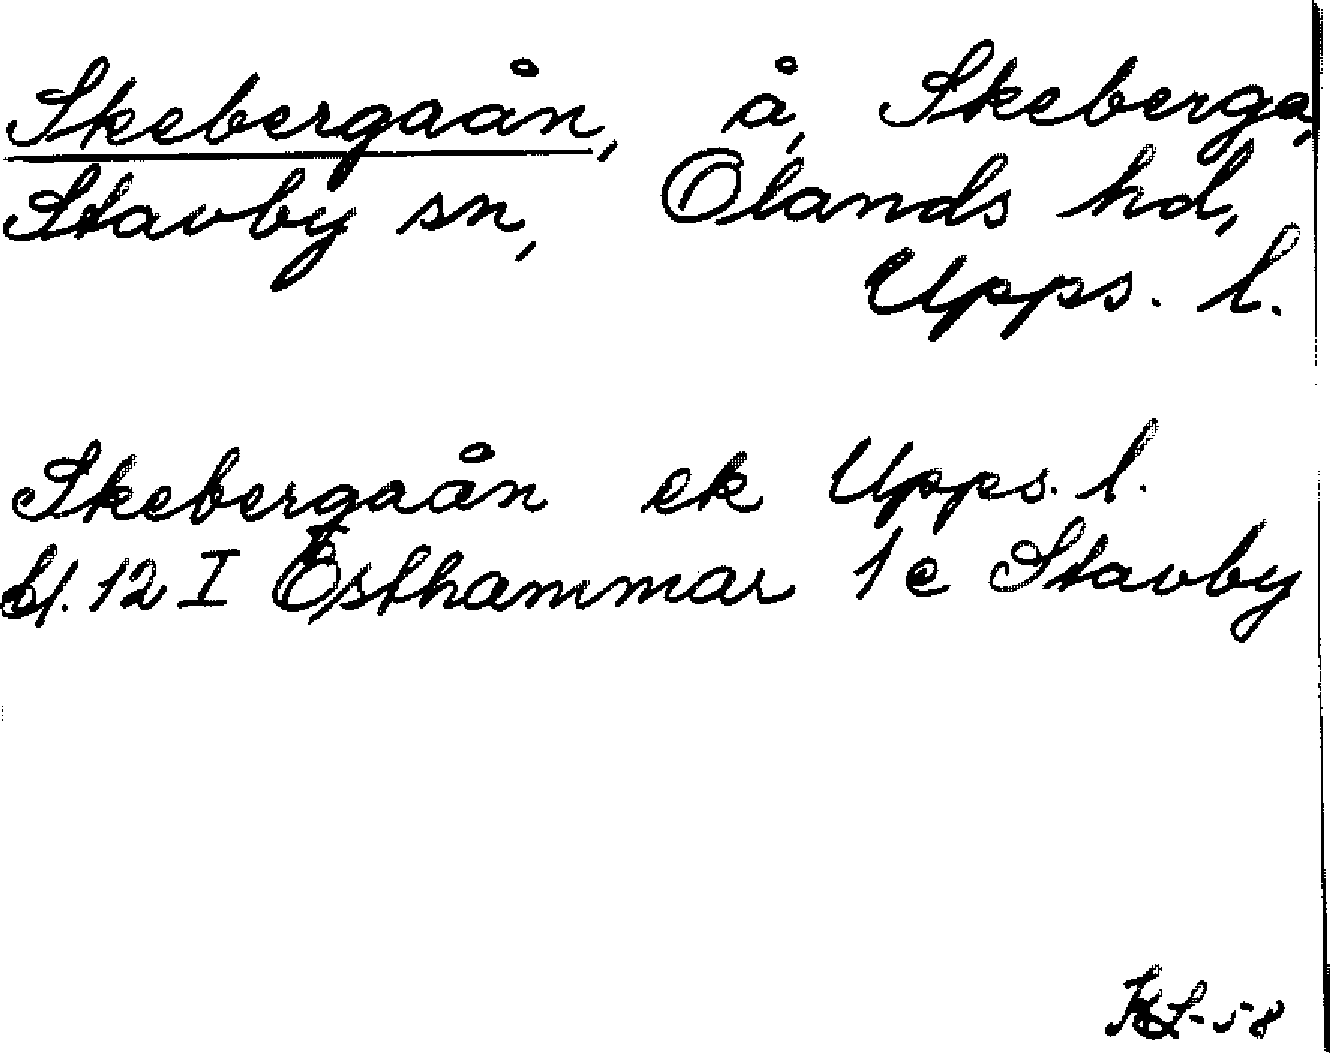 Skebergaån, å, Skeberga,
Stavby sn, Olands hd,
Upps. l.
Skebergaån ek Upps. l.
bl. 12 I Östhammar 1 e Stavby